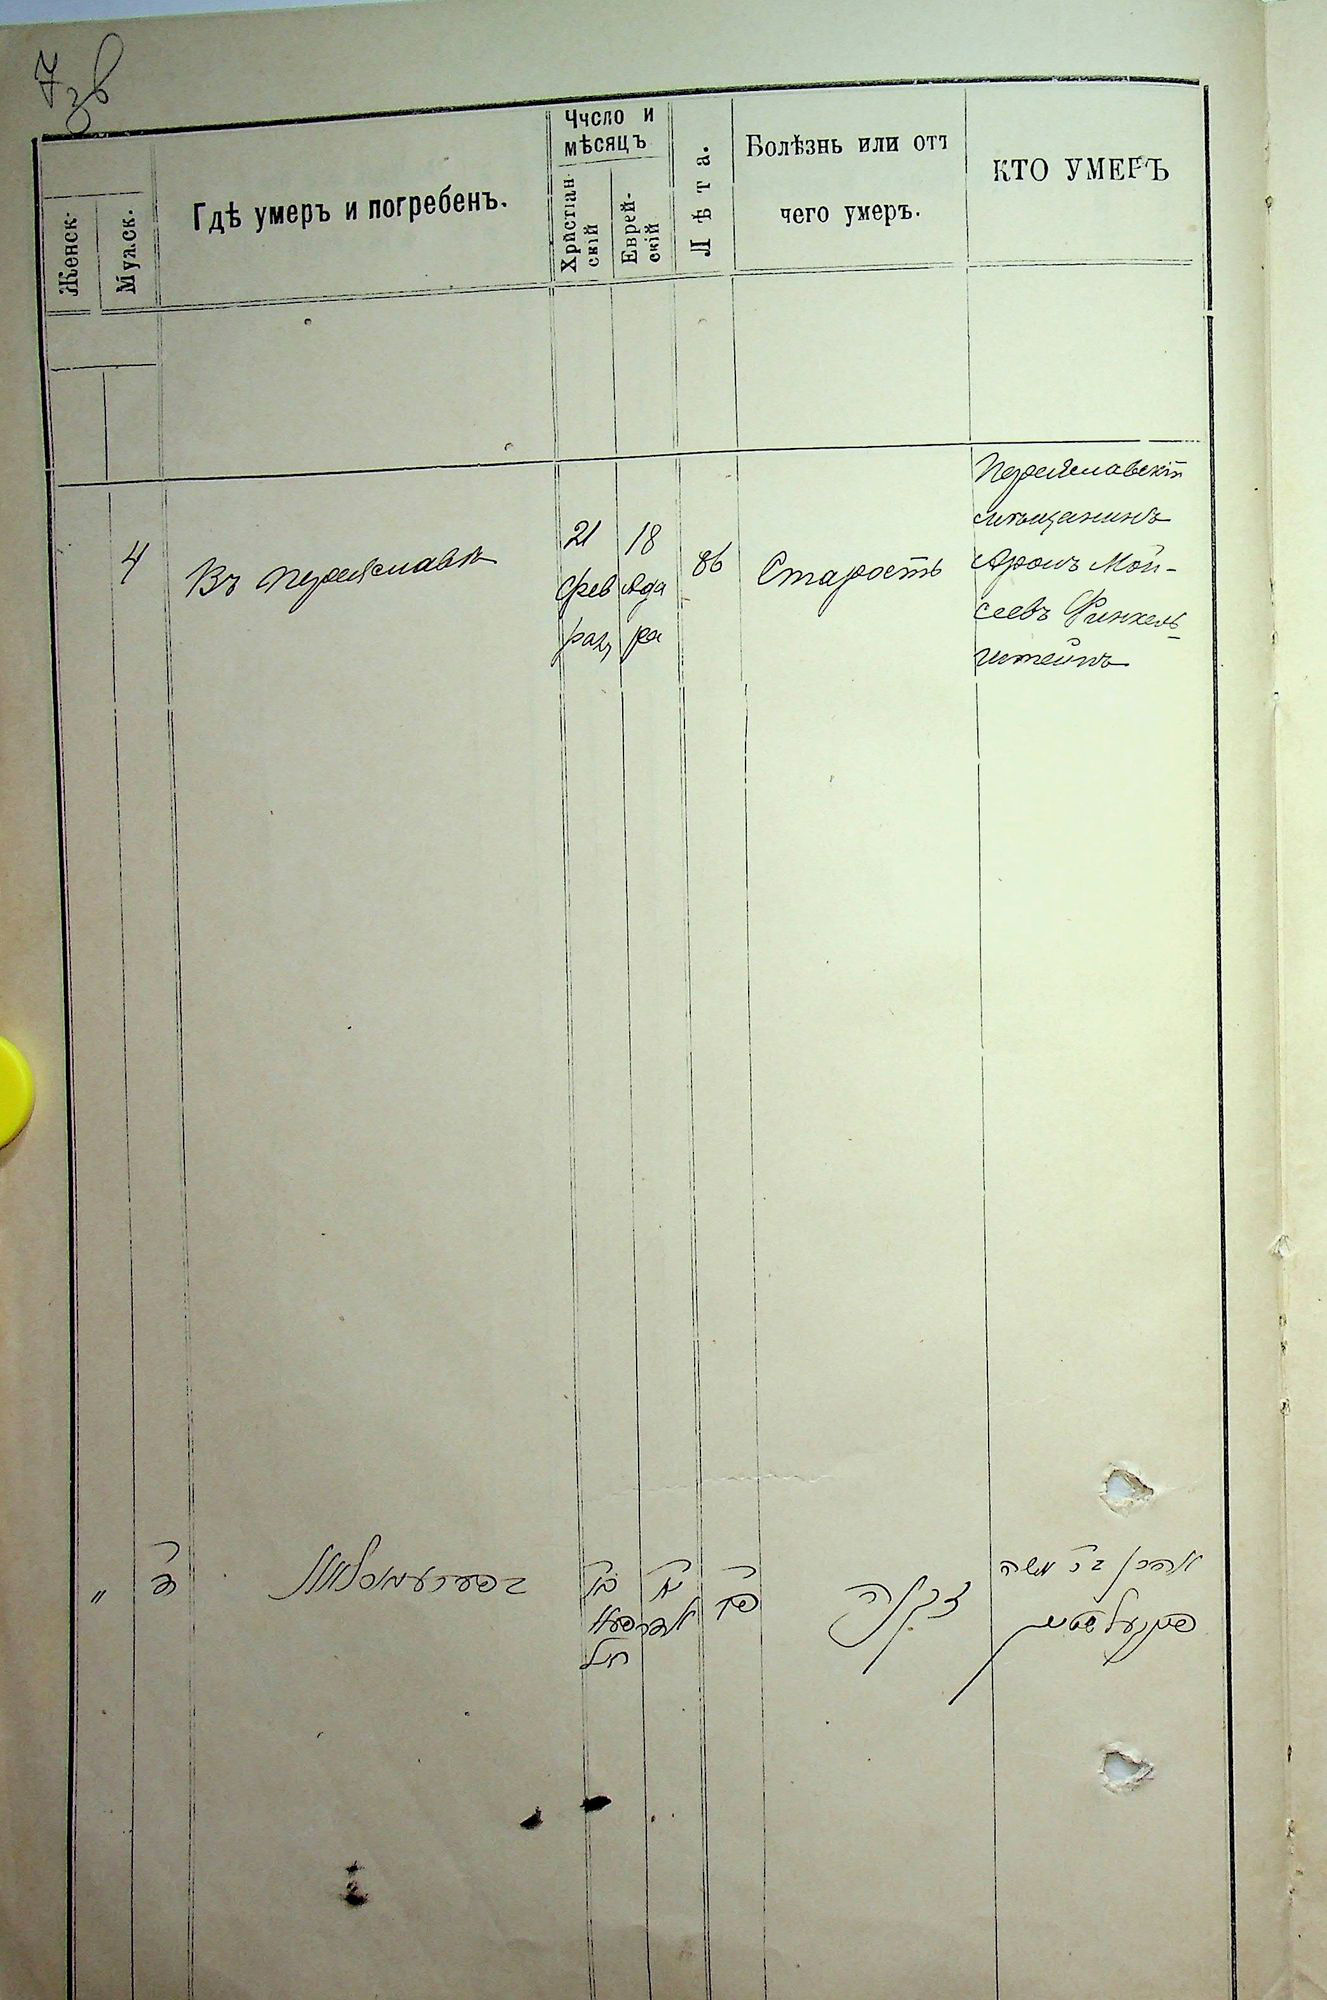 7 зв
Число и
мѣсяцъ
Женск.
Мужск.
Гдѣ умеръ и погребенъ.
Христіан
скій
Еврей-
скій
Лѣта.
Болѣзнь или отъ
чего умеръ.
КТО УМЕРЪ
4
Въ Переяславѣ
21
Фев
рал,
18
Ада
ра
86
Старость
Переяславскій
мѣщанинъ
Аронъ Мои-
сеевъ Финкель-
штейнъ
"
ד
זקנה
אהרן בר משה